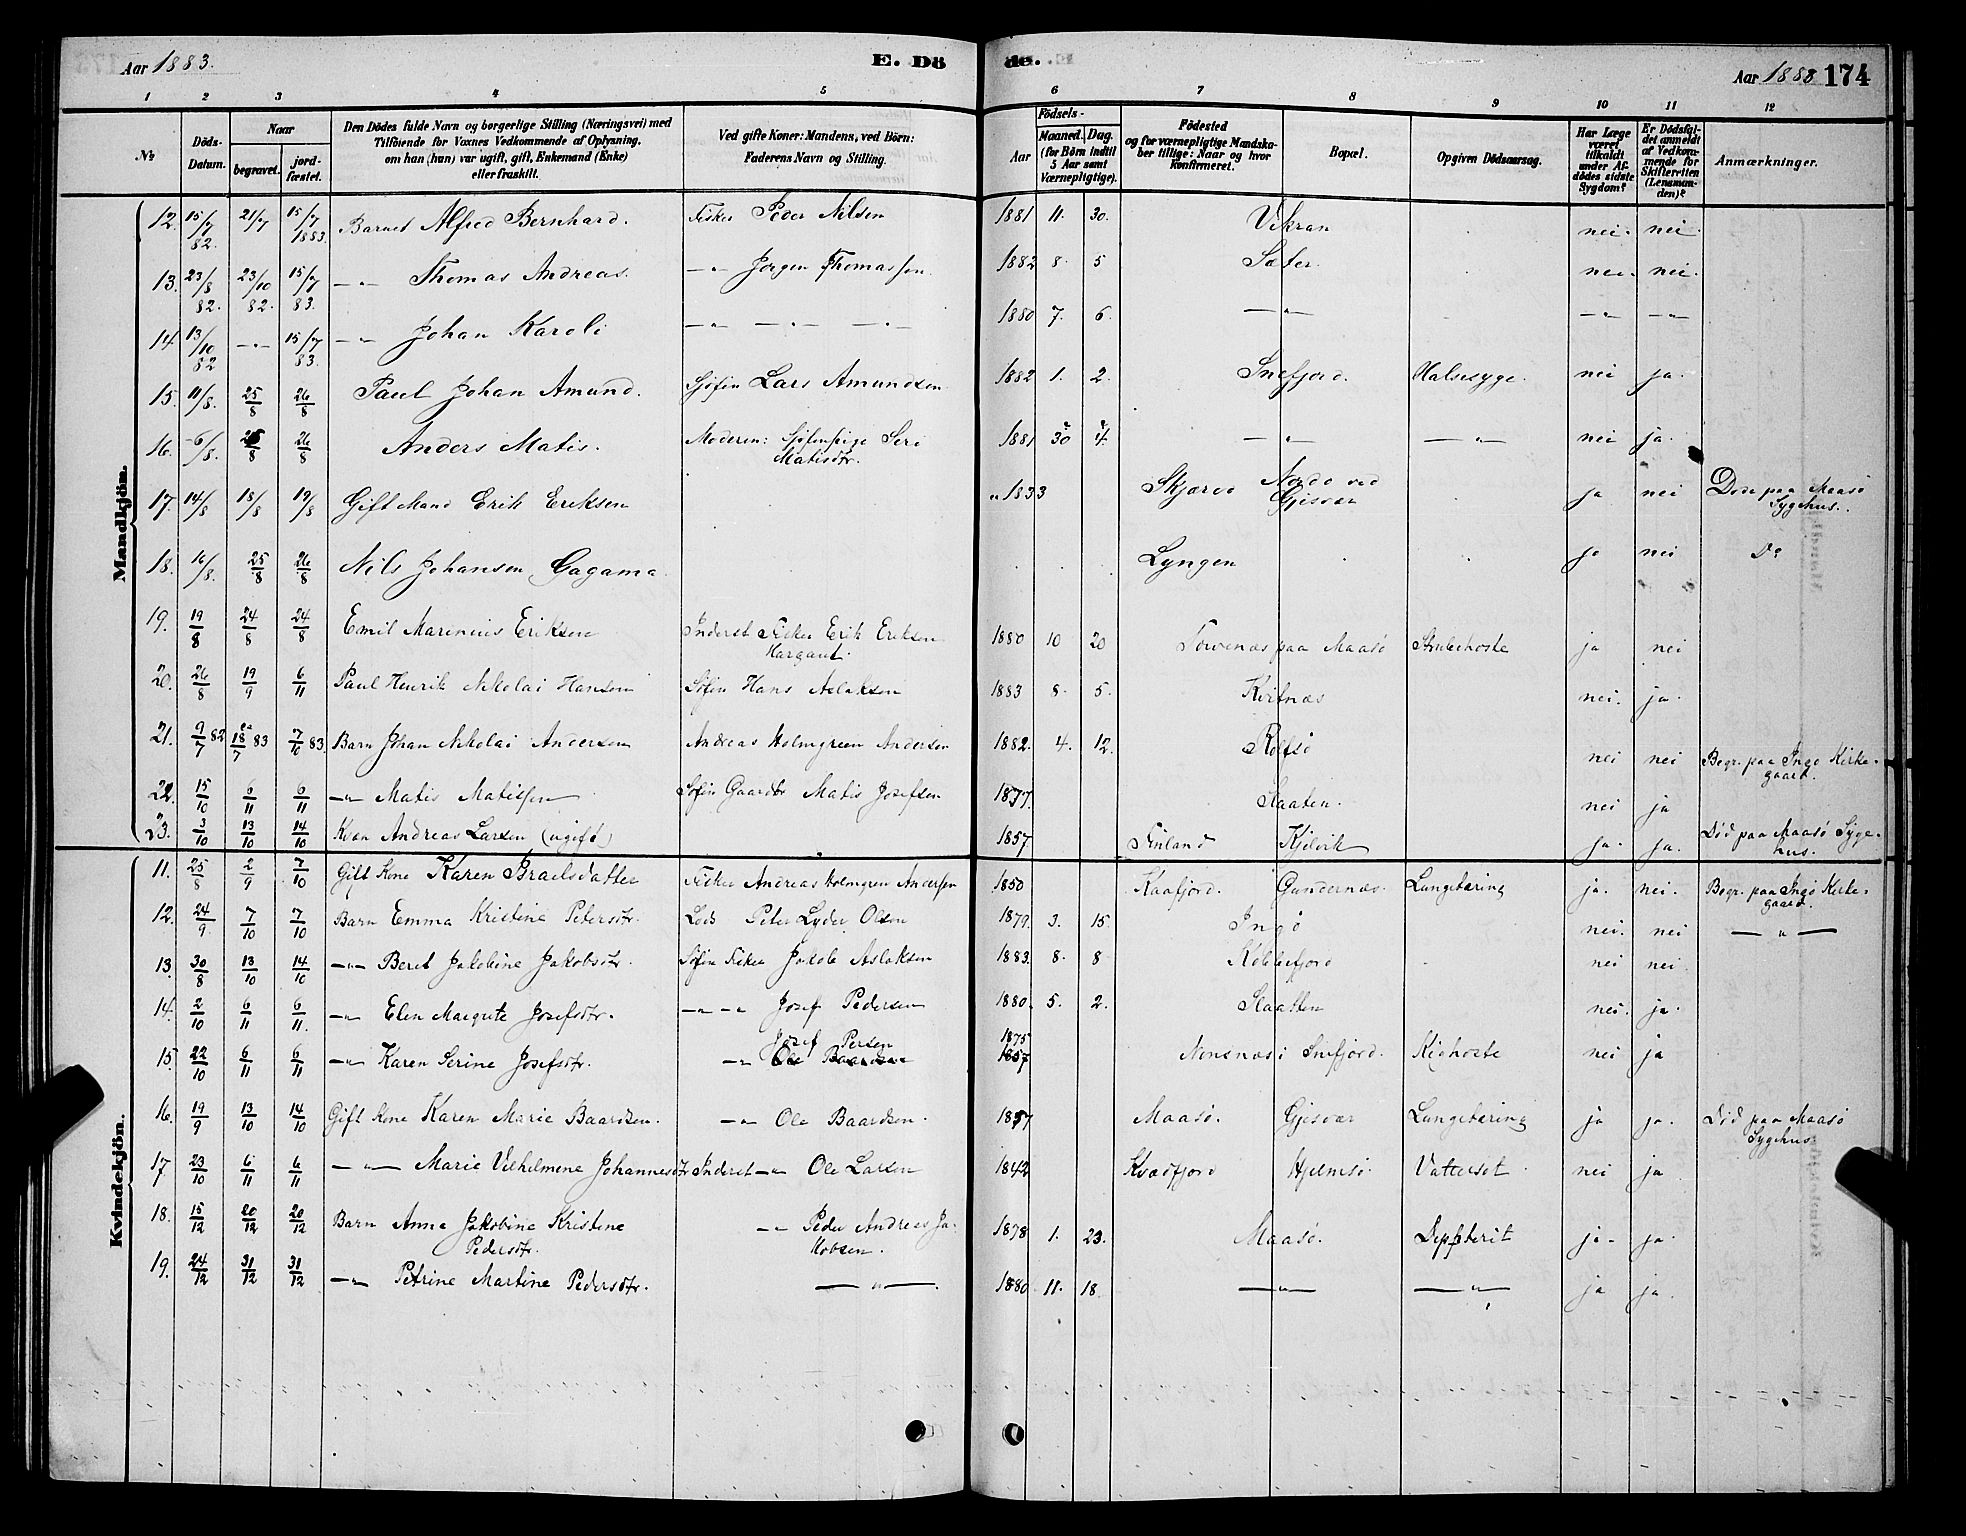 Aar 1883.
E. Dö
de.
Aar 1888 174
1 2 3 4 5 6 7 8 9 10 11 12
№
Döds-
Datum.
Naar
begravet.
jord-
fæstet.
Den Dödes fulde Navn og borgerlige Stilling (Næringsvei) med
Tilföiende for Voxnes Vedkommende af Oplysning,
om han (hun) var ugift, gift, Enkemand (Enke)
eller fraskilt.
Ved gifte Koner: Mandens, ved Börn:
Faderens Navn og Stilling.
Födsels-
Aar
Maaned. Dag.
(for Börn indtil
5 Aar samt
Værnepligtige).
Födested
og for værnepligtige Mandska-
ber tillige: Naar og hvor
konfirmeret.
Bopæl.
Opgiven Dödsaarsag.
Har Læge
været
tilkaldt
under Af-
dödes sidste
Sygdom?
Er Dödsfal-
det anmeldt
af Vedkom-
mende for
Skifteretten
(Lensman-
den)?
Anmærkninger.
Mandkjön.
12. 15/7 82. 21/7 15/7 1883. Barnet Alfred Bernhard. Fisker Peder Nilsen 1881 11. 30. Vikran nei. nei.
13. 23/8 82. 23/10 82. 15/7 83. —"— Thomas Andreas. —"— Jørgen Thomassen. 1882 8. 5 Sæter. nei. nei.
14. 13/10 82 —"— 15/7 83. —"— Johan Karoli —"— —"— —"— 1880 7. 6. —"— —"— —"—
15. 11/8. 25/8 26/8 Paul Johan Amund. Sjøfin Lars Amundsen 1882 1. 2. Snefjord. Halssyge. nei ja.
16. 6/8. 25/8 26/8 Anders Matis. Moderen: Sjøfinpige Siri
Matisdtr. 1881 30 4. —"— —"— nei ja.
17. 14/8 18/8 19/8 Gift Mand Erik Eriksen " 1833 Skjærvø Nordø ved
Gjesvær ja nei Døde paa Maasø
Sygehus.
18. 16/8. 25/8 26/8 Nils Johansen Gagama Lyngen ja nei Do
19. 19/8 24/8 24/8 Emil Marinius Eriksen Inderst Fisker Erik Eriksen
1880 10 20 Torvenæs paa Maasø Strubehoste ja nei
20. 26/8 19/9 6/11 Paul Henrik Nikolai Hansen Søfin Hans Aslaksen 1883 8. 5. Kvitnæs nei. ja.
21. 9/7 82 18/7 83 7/10 83. Barn Johan Nikolai Andersen Andreas Holmgreen Andersen 1882. 4. 12. Rolfsø nei nei Begr. paa Ingø Kirke-
gaard.
22. 15/10 6/11 6/11 —"— Matis Matissen Søfin Gaardbr Matis Josefsen 1877. Slaaten. nei ja
23. 3/10 13/10 14/10 Kvæn Andreas Larsen (ugift) 1857. Finland Kjelvik ja. ja. Død paa Maasø Syge-
hus.
Kvindekjön.
11. 25/8 2/9 7/10 Gift Kone Karen Israelsdatter Fisker Andreas Holmgren Andersen 1850 Kaafjord. Gundernæs. Lungetæring ja. nei. Begr. paa Ingø Kirke-
gaard.
12. 24/9. 7/10 7/10 Barn Emma Kristine Petersdtr. Lods Peter Lyder Olsen 1879. 3. 15. Ingø nei. nei —"—
13. 30/8 13/10 14/10 —"— Beret Jakobine Jakobsdtr. Søfin Fisker Jakob Aslaksen 1883. 8. 8 Kobbefjord nei nei.
14. 2/10 6/11 6/11. —"— Elen Margrete Josefsdtr. —"— —"— Josef Pedersen 1880. 5. 2. Slaatten nei. ja.
Josef Persen 1875
15. 22/10 6/11 6/11 —"— Karen Serine Josefsdtr. —"— Ole Baardsen 1857 Nonsnæs i Snefjord. Kighoste nei ja
16. 19/9 13/10 14/10 Gift Kone Karen Marie Baardsen. —"— Ole Baardsen. 1857 Maasø. Gjesvær Lungetæring ja ja. Død paa Maasø
Sygehus
17 23/10 6/11 6/11 —"— Marie Vilhelmene Johannesdtr Inderst —"— Ole Larsen 1842 Kvædfjord Hjelmsø. Vattersot nei ja
18. 15/12 20/12 20/12 Barn Anna Jakobine Kristine
Pedersdtr. —"— Peder Andreas Ja-
kobsen. 1878 1. 23. Maasø. Dipfterit ja- ja.
19. 24/12 31/12 31/12 —"— Petrine Martine Pedersdtr. —"— 1880. 11. 18. —"— —"— ja ja.